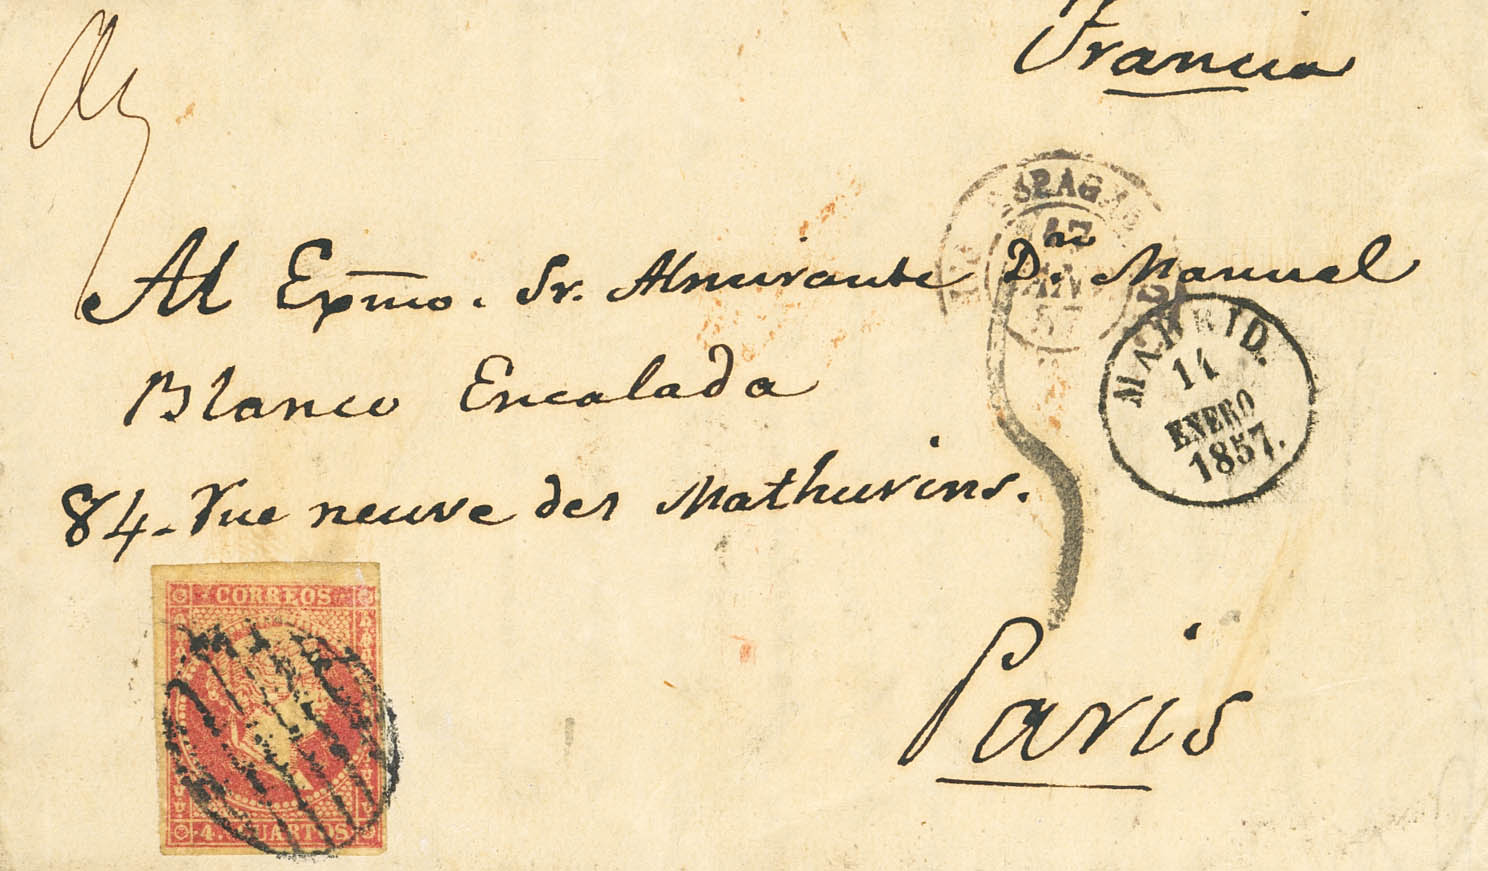 Francia
Al Exmo. Sr. Almirante Dn. Manuel
Blanco Encalada
84. rue neuve des Mathurins.
Paris
ESPAGNE
17
57
MADRID.
14
ENERO
1857.
CORREOS
4. CUARTOS